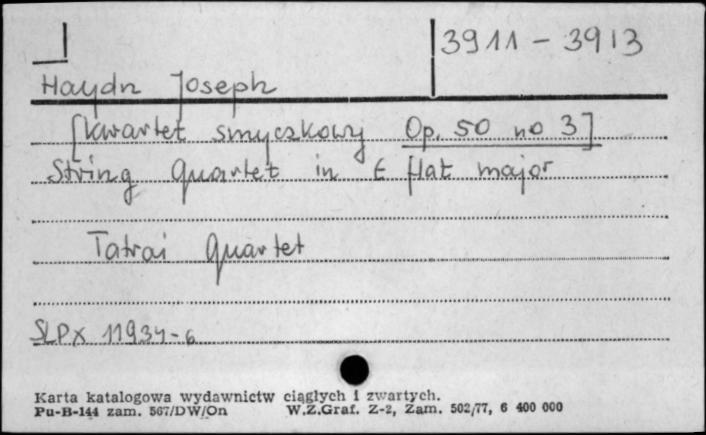 3911 - 3913
Haydn Joseph
[kwartet smyczkowy Op. 50 no 3]
String Quartet in E flat major
Tatrai Quartet
SLPX 11934-6
Karta katalogowa wydawnictw ciągłych i zwartych.
Pu-B-144 zam. 567/DW/On W.Z.Graf. Z-2, Zam. 502/77, 6 400 000